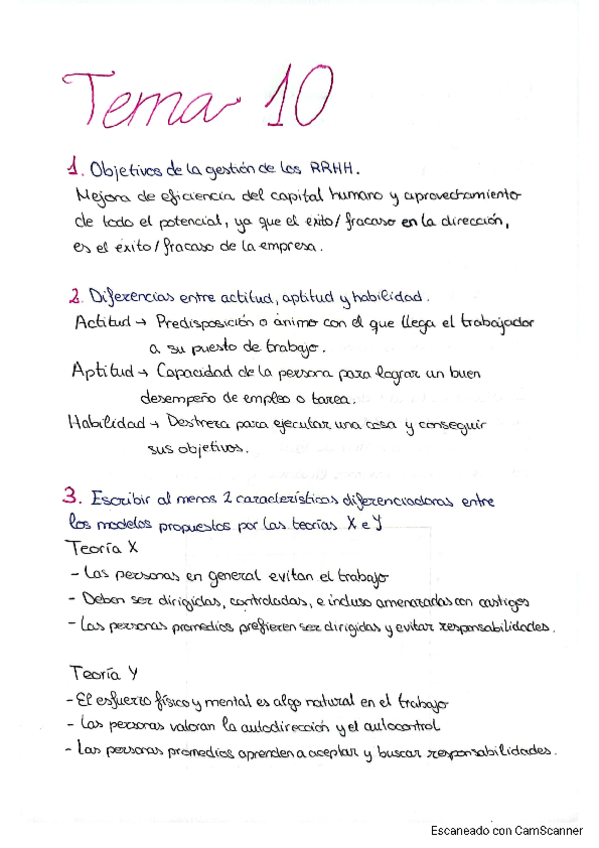 Tema 10
1. Objetivos de la gestión de los RRHH.
Mejora de eficiencia del capital humano y aprovechamiento
de todo el potencial, ya que el exito/fracaso en la dirección,
es el éxito/fracaso de la empresa.
2. Diferencias entre actitud, aptitud y habilidad.
Actitud → Predisposición o ánimo con el que llega el trabajador
a su puesto de trabajo.
Aptitud → Capacidad de la persona para lograr un buen
desempeño de empleo o tarea.
Habilidad → Destreza para ejecutar una cosa y conseguir
sus objetivos.
3. Escribir al menos 2 características diferenciadoras entre
los modelos propuestos por las teorías X e Y
Teoría X
- Las personas en general evitan el trabajo
- Deben ser dirigidas, controladas, e incluso amenazadas con castigos
- Las personas promedios prefieren ser dirigidas y evitar responsabilidades.
Teoría Y
- El esfuerzo físico y mental es algo natural en el trabajo
- Las personas valoran la autodirección y el autocontrol
- Las personas promedios aprenden a aceptar y buscar responsabilidades.
Escaneado con CamScanner